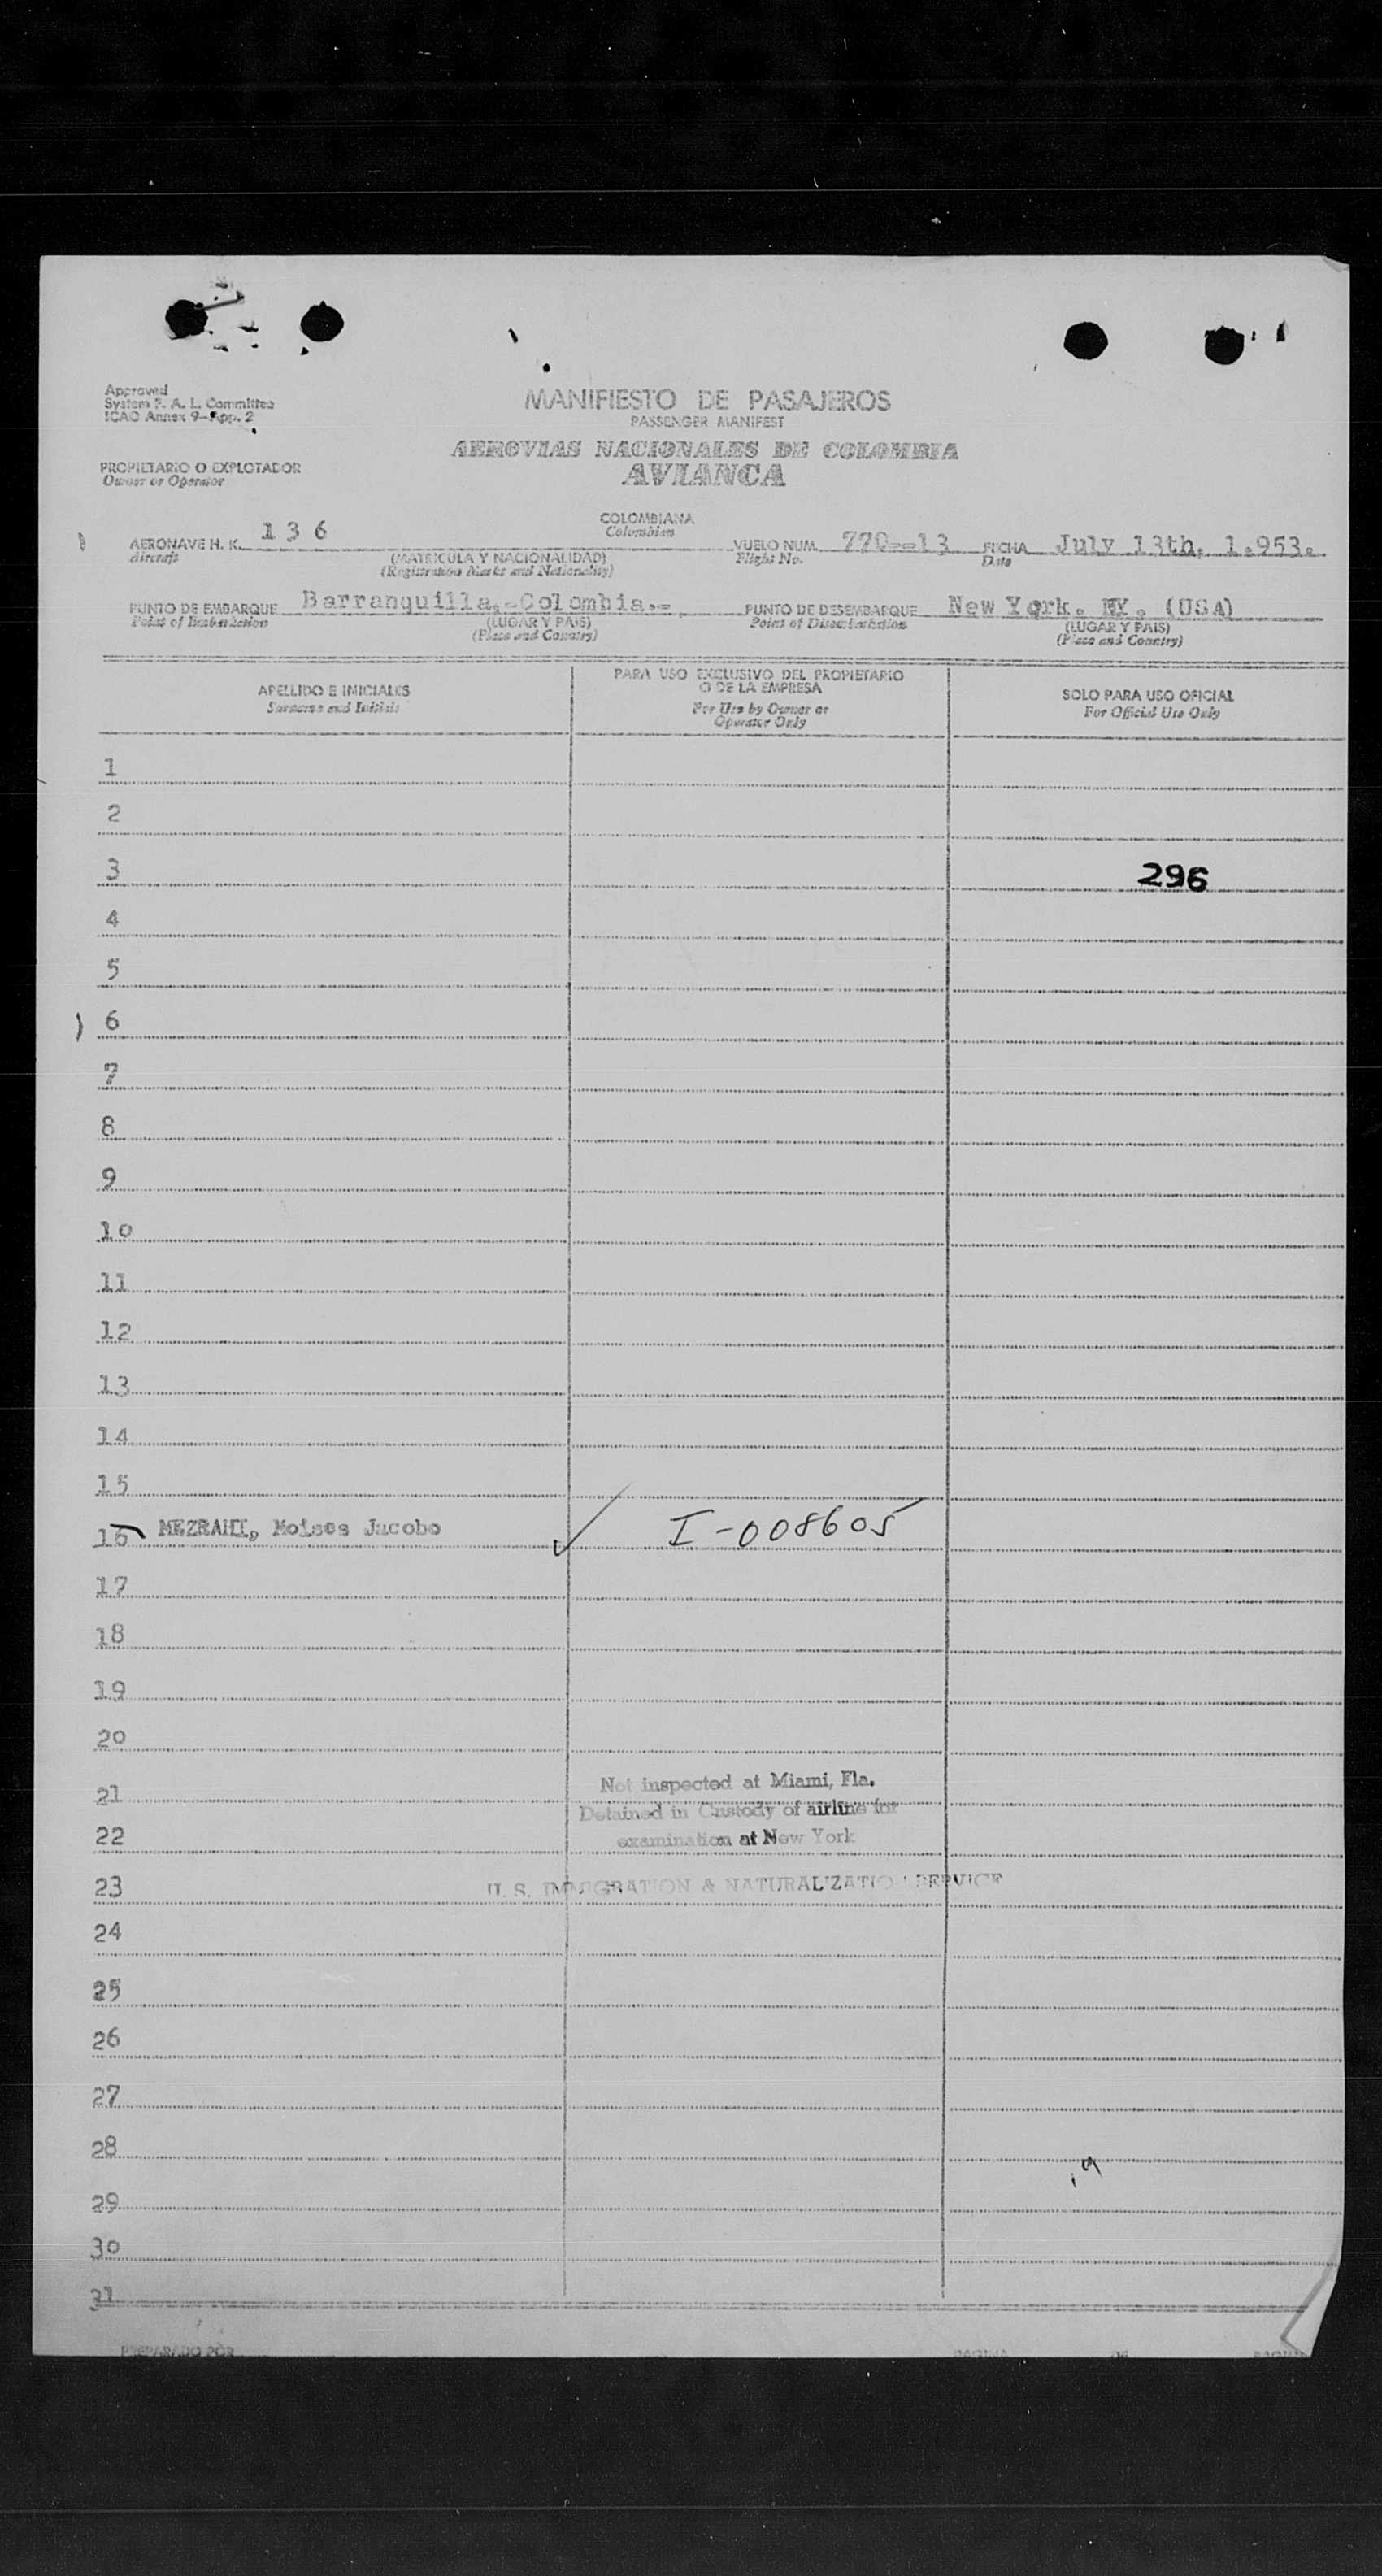 Approved
System F. A. L. Committee
ICAO Annex 9-App. 2
MANIFIESTO DE PASAJEROS
PASSENGER MANIFEST
AEROVIAS NACIONALES DE COLOMBIA
AVIANCA
PROPIETARIO O EXPLOTADOR
Owner or Operator
COLOMBIANA
Colombian
AERONAVE H. K. 136 VUELO NUM. 770--13 FECHA July 13th, 1.953.
Aircraft (MATRICULA Y NACIONALIDAD) Flight No. Date
(Registration Marks and Nationality)
PUNTO DE EMBARQUE Barranquilla.-Colombia.- PUNTO DE DESEMBARQUE New York. NY. (USA)
Point of Embarkation (LUGAR Y PAIS) Point of Disembarkation (LUGAR Y PAIS)
(Place and Country) (Place and Country)
APELLIDO E INICIALES PARA USO EXCLUSIVO DEL PROPIETARIO SOLO PARA USO OFICIAL
Surname and Initials O DE LA EMPRESA For Official Use Only
For Use by Owner or
Operator Only
1
2
3 296
4
5
6
7
8
9
10
11
12
13
14
15
16 MEZRAHI, Moises Jacobo I-008605
17
18
19
20
Not inspected at Miami, Fla.
21
Detained in Custody of airline for
22 examination at New York
23 U. S. IMMIGRATION & NATURALIZATION SERVICE
24
25
26
27
28
29
30
31
PREPARADO POR PAGINA DE